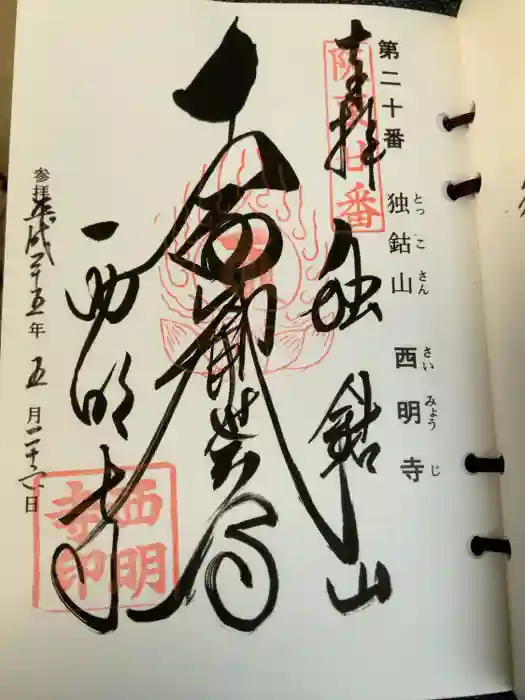 第二十番
独鈷山
とっこさん
西明寺
さいみょうじ
坂東廿番
奉拝
独鈷山
十一面観世音
西明寺
西明寺印
参拝平成二十五年五月二十六日